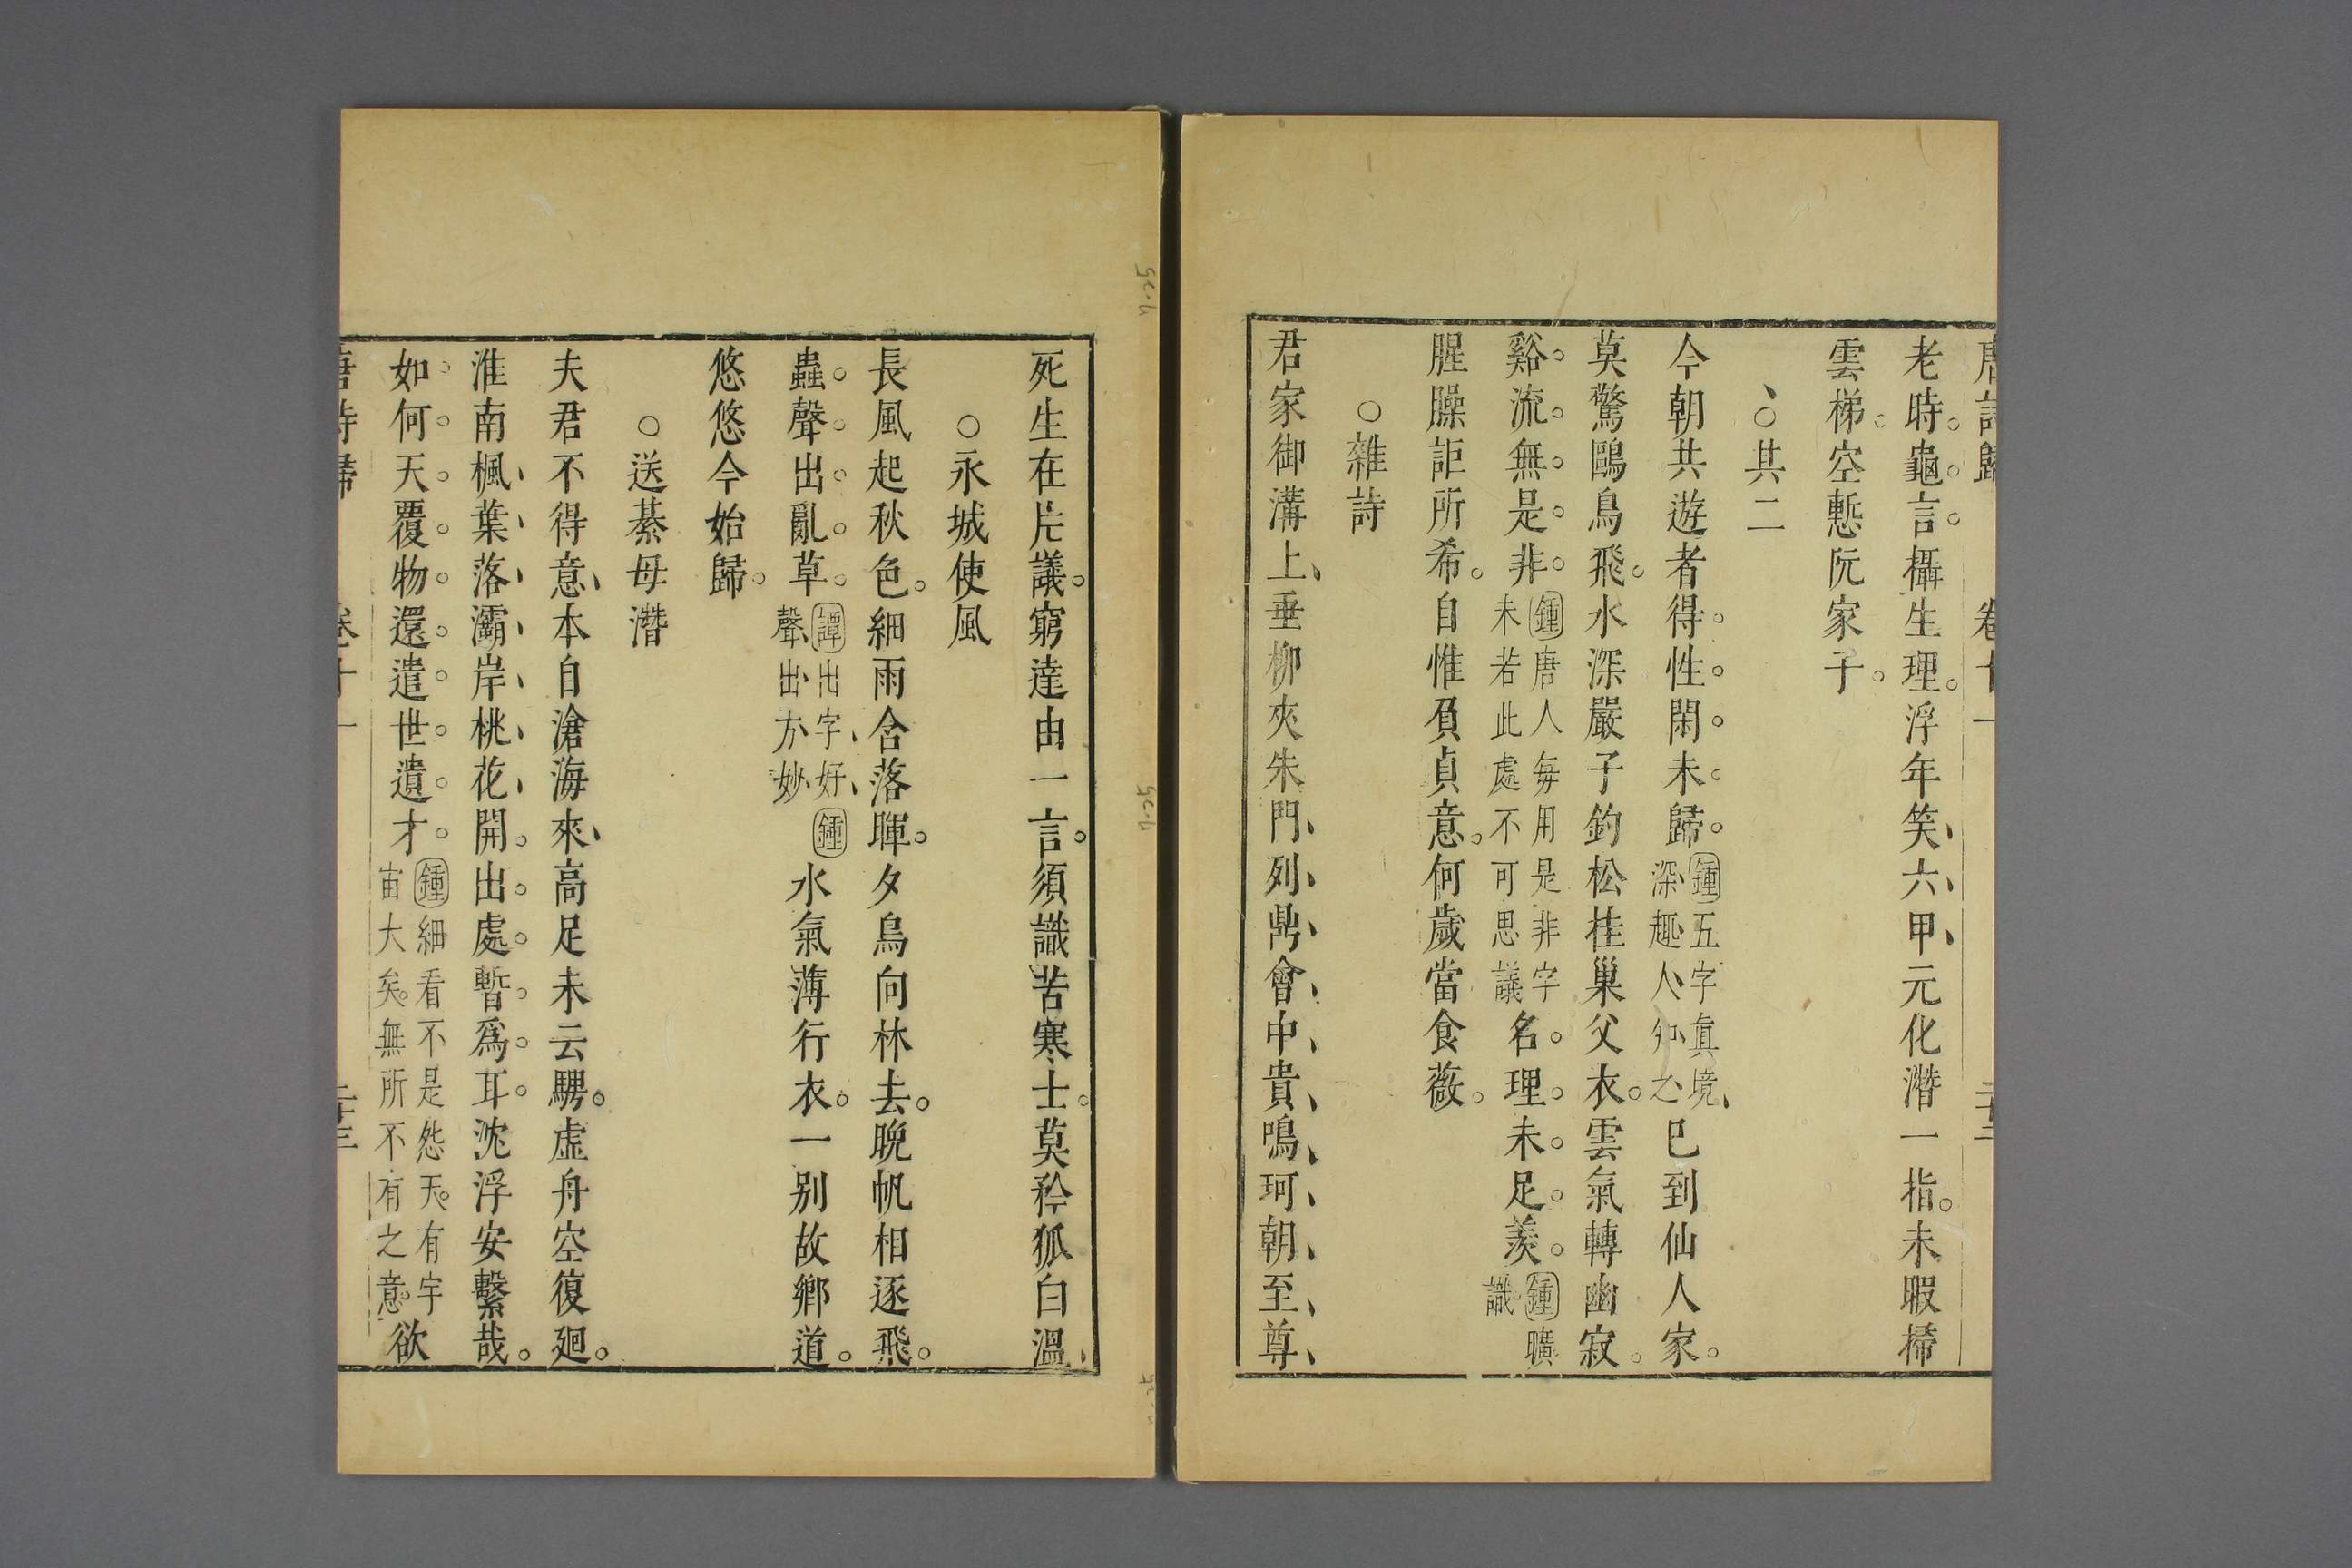 唐詩歸 卷十一 二十二
老時龜言攝生理浮年笑六甲元化潛一指未暇掃
雲梯空慙阮家子
○其二
今朝共遊者得性閑未歸鍾五字眞境深趣人知之已到仙人家
莫驚鷗鳥飛水深嚴子釣松挂巢父衣雲氣轉幽寂
谿流無是非鍾唐人每用是非字未若此處不可思議名理未足羨鍾曠識
腥臊詎所希自惟負貞意何歲當食薇
○雜詩
君家御溝上垂柳夾朱門列鼎會中貴鳴珂朝至尊
死生在片議窮達由一言須識苦寒士莫矜狐白溫
○永城使風
長風起秋色細雨含落暉夕鳥向林去晚帆相逐飛
蟲聲出亂草譚出字好鍾聲出方妙水氣薄行衣一別故鄉道
悠悠今始歸
○送綦母潛
夫君不得意本自滄海來高足未云騁虛舟空復廻
淮南楓葉落灞岸桃花開出處暫爲耳沈浮安繫哉
如何天覆物還遣世遺才鍾細看不是怨天有宇宙大矣無所不有之意欲
唐詩歸 卷十一 二十三